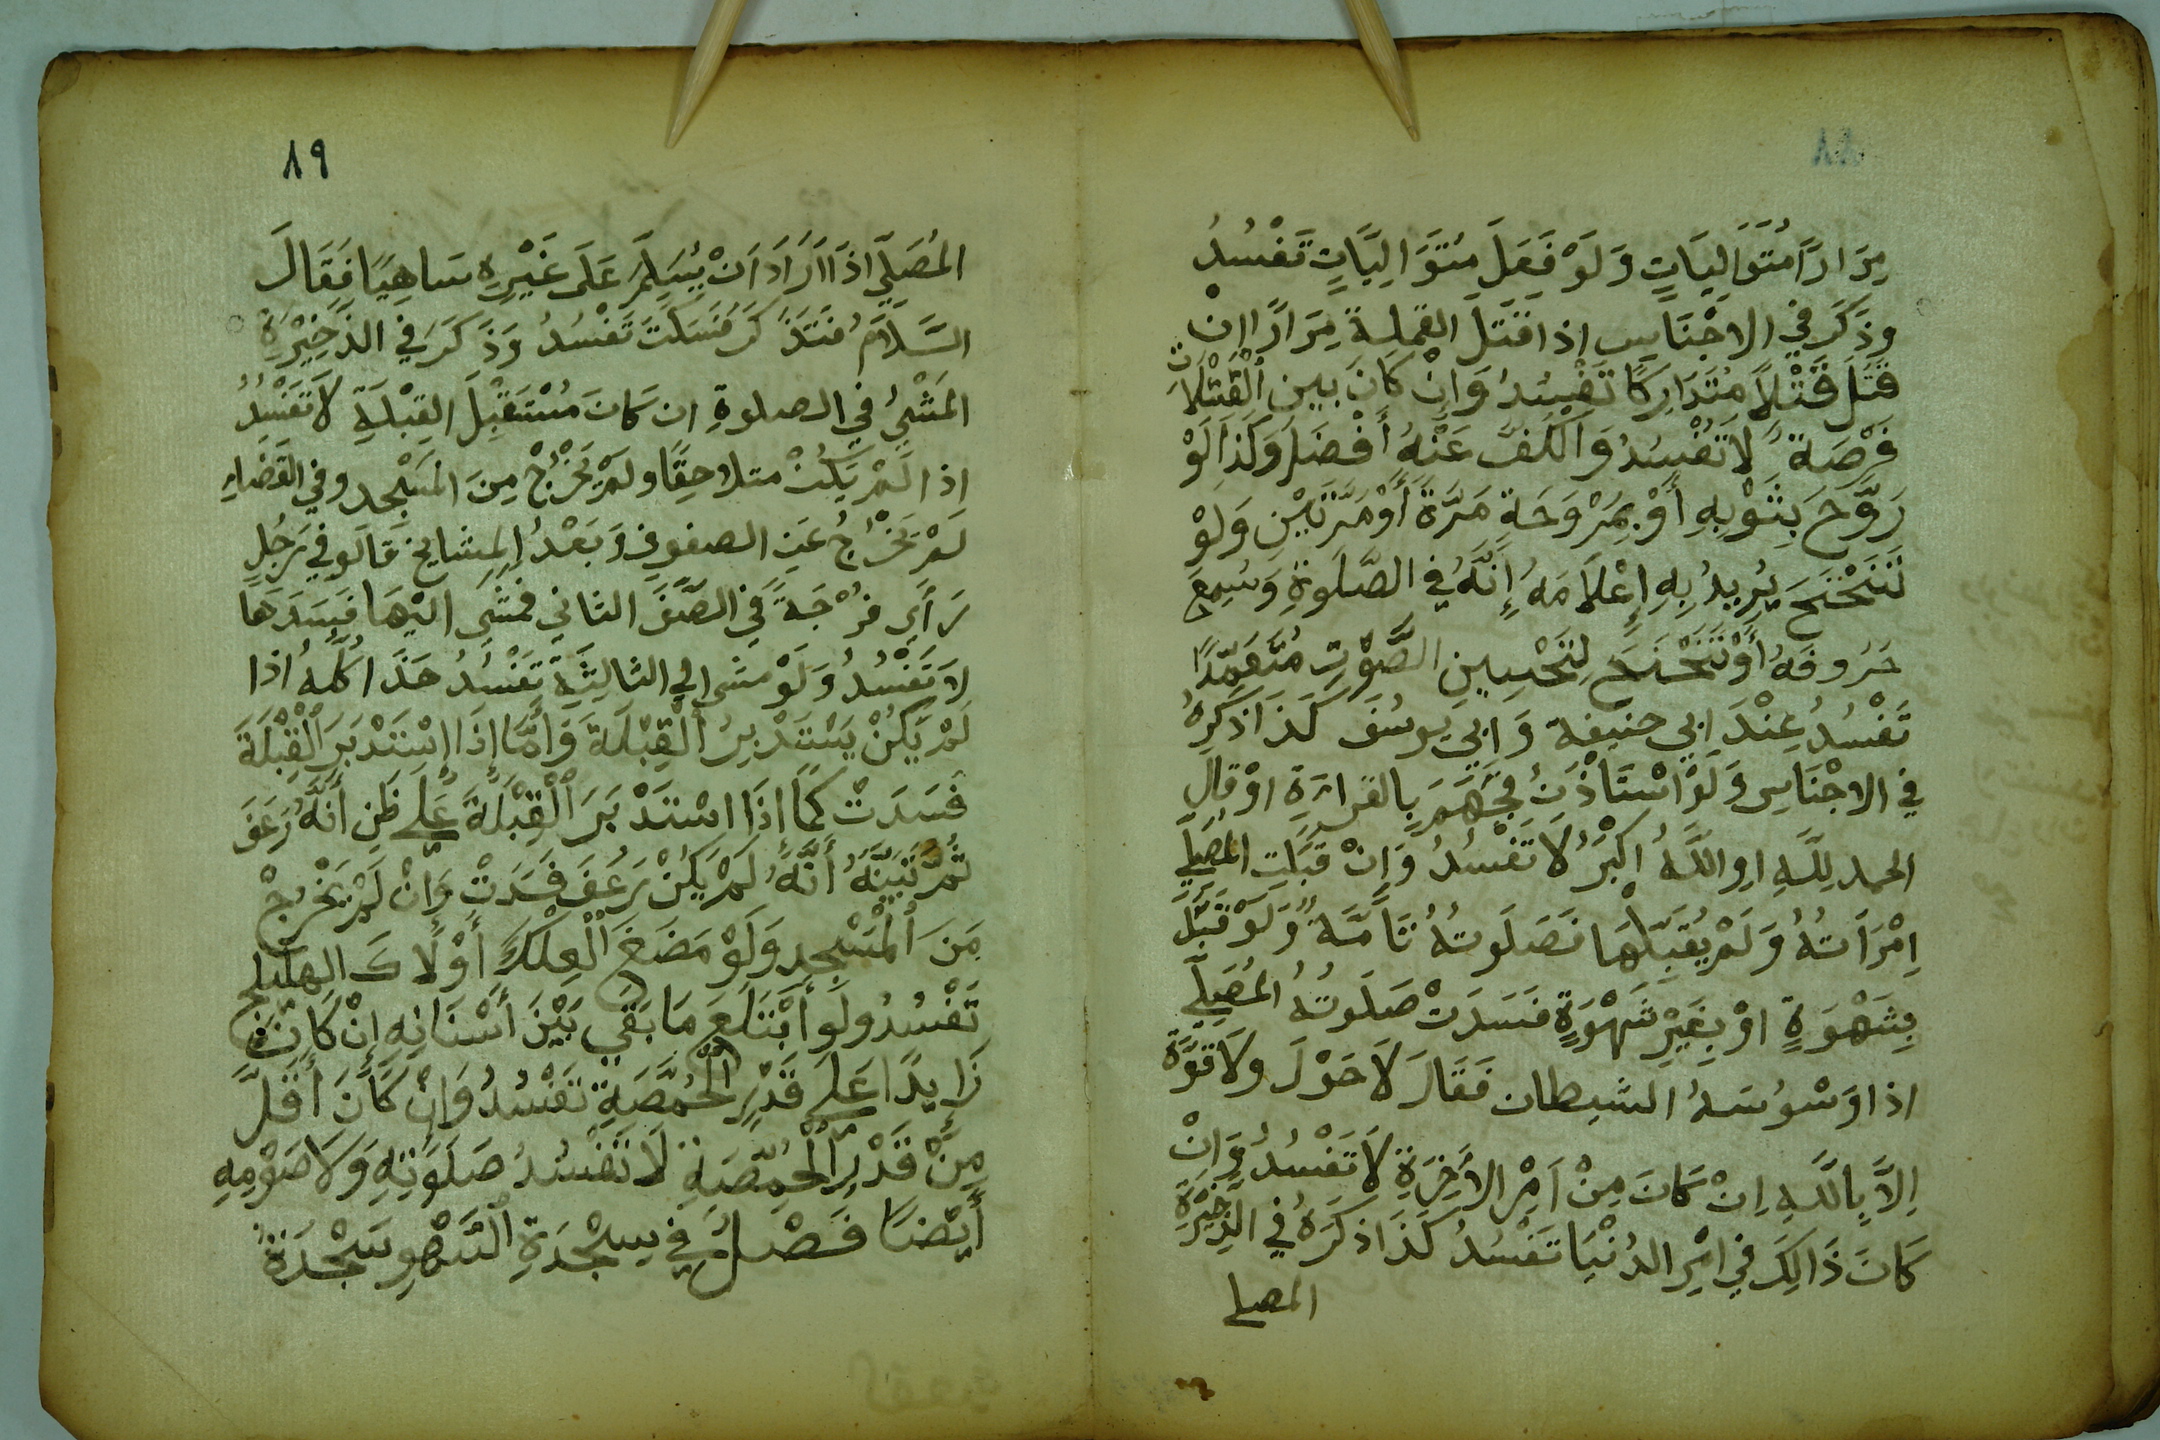 ٨٨
مِرَارًا مُتَوَالِيَاتٍ وَلَوْ فَعَلَ مُتَوَالِيَاتٍ تَفْسُدُ
وذَكَرَ فِي الاجْنَاسِ اذا قَتَلَ القملةَ مِرَارًا اِنْ
قَتَلَ قَتْلًا مُتَدَارِكًا تَفْسُدُ وَاِنْ كَانَ بين الْقَتْلَاتِ
فَرْصَةٌ لَا تَفْسُدُ وَالْكَفُّ عَنْهُ أَفْضَلُ وَكَذَا لَوْ
رَوَّحَ بِثَوْبِهِ أَوْ بِمِرْوَحَةٍ مَرَّةً أَوْ مَرَّتَيْنِ وَلَوْ
تَنَحْنَحَ يُرِيدُ بِهِ إِعْلَامَهُ إِنَّهُ فِي الصَّلَوةِ وَسُمِعَ
حُرُوفَهُ أَوْ تَنَحْنَحَ لِتَحْسِينِ الصَّوْتِ مُتَعَمِّدًا
تَفْسُدُ عِنْدَ اَبِي حنيفة وَ اَبِي يوسُفَ كَذَا ذَكَرَهُ
فِي الاجْنَاسِ وَلَوْ اسْتَأْذَنَ فَجَهَرَ بِالقراءَةِ اوْ قالَ
الحمد لِلَّهِ اوِ اللَّهُ اكْبَرُ لَا تَفْسُدُ وَاِنْ قَبَّلَتِ المُصَلِّي
اِمْرَأَتُهُ وَلَمْ يُقَبِّلْهَا فَصَلَوتُهُ تَامَّةٌ وَلَوْ قَبَّلَ
بِشَهْوَةٍ اوْ بِغَيْرِ شَهْوَةٍ فَسَدَتْ صَلَوتُهُ المُصَلِّي
اذا وَسْوَسَهُ الشيطان فَقَالَ لَا حَوْلَ ولَا قُوَّةَ
اِلَّا بِاللَّهِ اِنْ كَانَ مِنْ اَمْرِ الأَخِرَةِ لَا تَفْسُدُ وَاِنْ
كَانَ ذَالِكَ فِي امْرِ الدُنْيَا تَفْسُدُ كَذَا ذكَرَهُ فِي الذَّخِيْرَةِ
المصلي
٨٩
المُصَلِّي اذَا اَرَادَ اَنْ يُسَلِّمَ عَلَى غَيْرِهِ سَاهِيًا فَقَالَ
السَّلَامُ فَتَذَكَرَ فَسَكَتَ تَفْسُدُ وَذَكَرَ فِي الذَّخِيْرَةِ
المَشْيُ فِي الصلوةِ ان كَانَ مُسْتَقْبِلَ القِبْلَةِ لَا تَفْسُدُ
اذا لَمْ يَكُنْ متلاحِقًا ولَمْ يَخْرُجْ مِنَ المَسْجِدِ وفي الفَضَاءِ
لَمْ يَخْرُجْ عَنِ الصفوفِ وَبَعْدُ المشايخ قَالو فِي رَجُلٍ
رَأَى فُرْجَةً فِي الصَّفِّ الثاني فمَشَى اليْهَا فَسَدَهَا
لَا تَفْسُدُ وَلَوْ مشى الي الثالِثَةِ تَفْسُدُ هَذَا كُلُّهُ اذا
لَمْ يَكُنْ يَسْتَدْبِرُ الْقِبْلَةَ وَأَمَّا إِذَا اِسْتَدْبَرَ الْقِبْلَةَ
فَسَدَتْ كَمَا إِذَا اسْتَدْبَرَ الْقِبْلَةَ عَلَى ظَنِ أَنَّهُ رَعَفَ
ثُمَّ تَبَيَّنَهُ أَنَّهُ لَمْ يَكُنْ رَعُفَ فَسَدَتْ وَاِنْ لَمْ يَخْرُجْ
مِنَ الْمَسْجِدِ وَلَوْ مَضَغَ الْعِلْكَ أَوْ لَاكَ الهليلج
تَفْسُدُ ولَو أَبْتَلَعَ مَا بَقِيَ بَيْنَ أَسْنَانِهِ اِنْ كَانَ
زَايِدًا عَلَى قَدْرِ الْحُمَّصَةِ تَفْسُدُ وَاِنْ كَانَ أَقَلَّ
مِنْ قَدْرِ الْحُمَّصَةِ لَا تَفْسُدُ صَلَوَتِهِ وَلَا صَوْمِهِ
أَيْضًا فَصْلٌ فِي سِجْدَةِ السَّهْوِ سَجْدَةُ